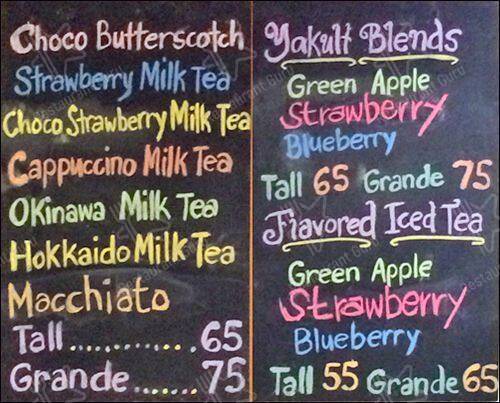 Choco Butterscotch
Strawberry Milk Tea
Choco Strawberry Milk Tea
Cappuccino Milk Tea
Okinawa Milk Tea
Hokkaido Milk Tea
Macchiato
Tall .............65
Grande.......75
Yakult Blends
Green Apple
Strawberry
Blueberry
Tall 65 Grande 75
Flavored Iced Tea
Green Apple
Strawberry
Blueberry
Tall 55 Grande 65